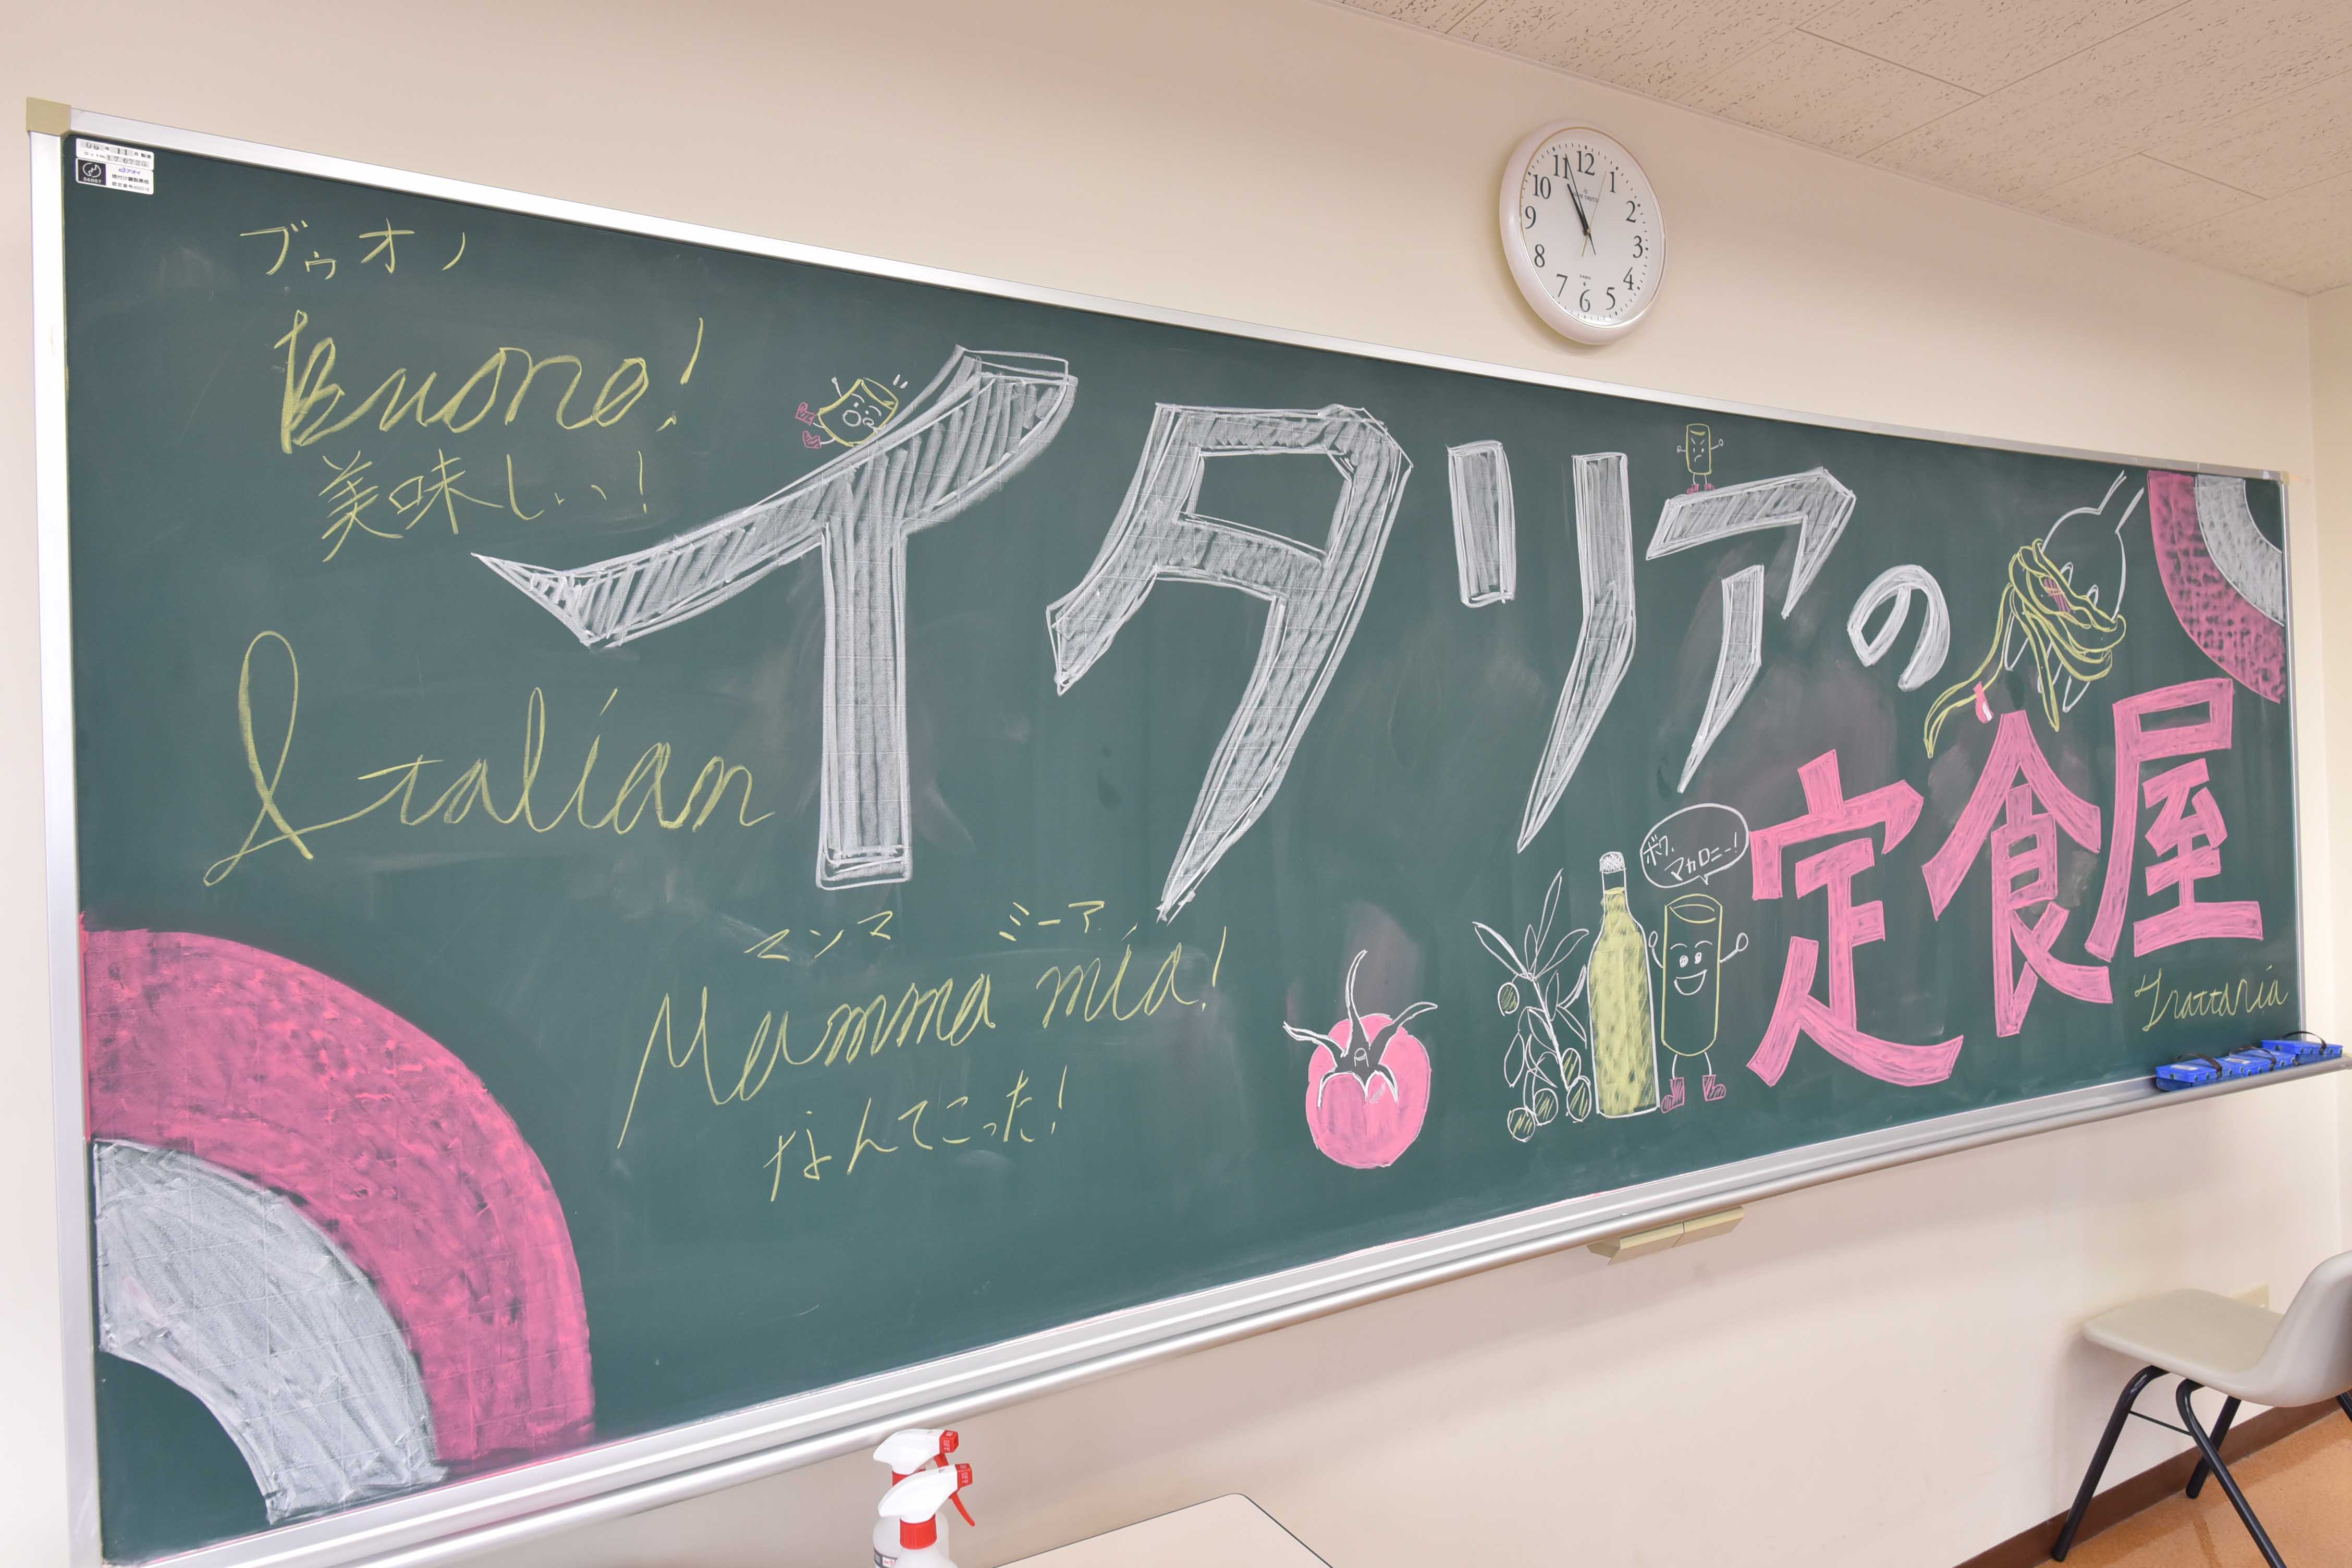 ブゥオノ
Buono!
美味しい!
イタリアの
定食屋
Italian
ボク、
マカロニー!
マンマ ミーア
Mamma mia!
なんてこった!
Trattaria
11 12 1
10 2
9 3
8 4
7 6 5